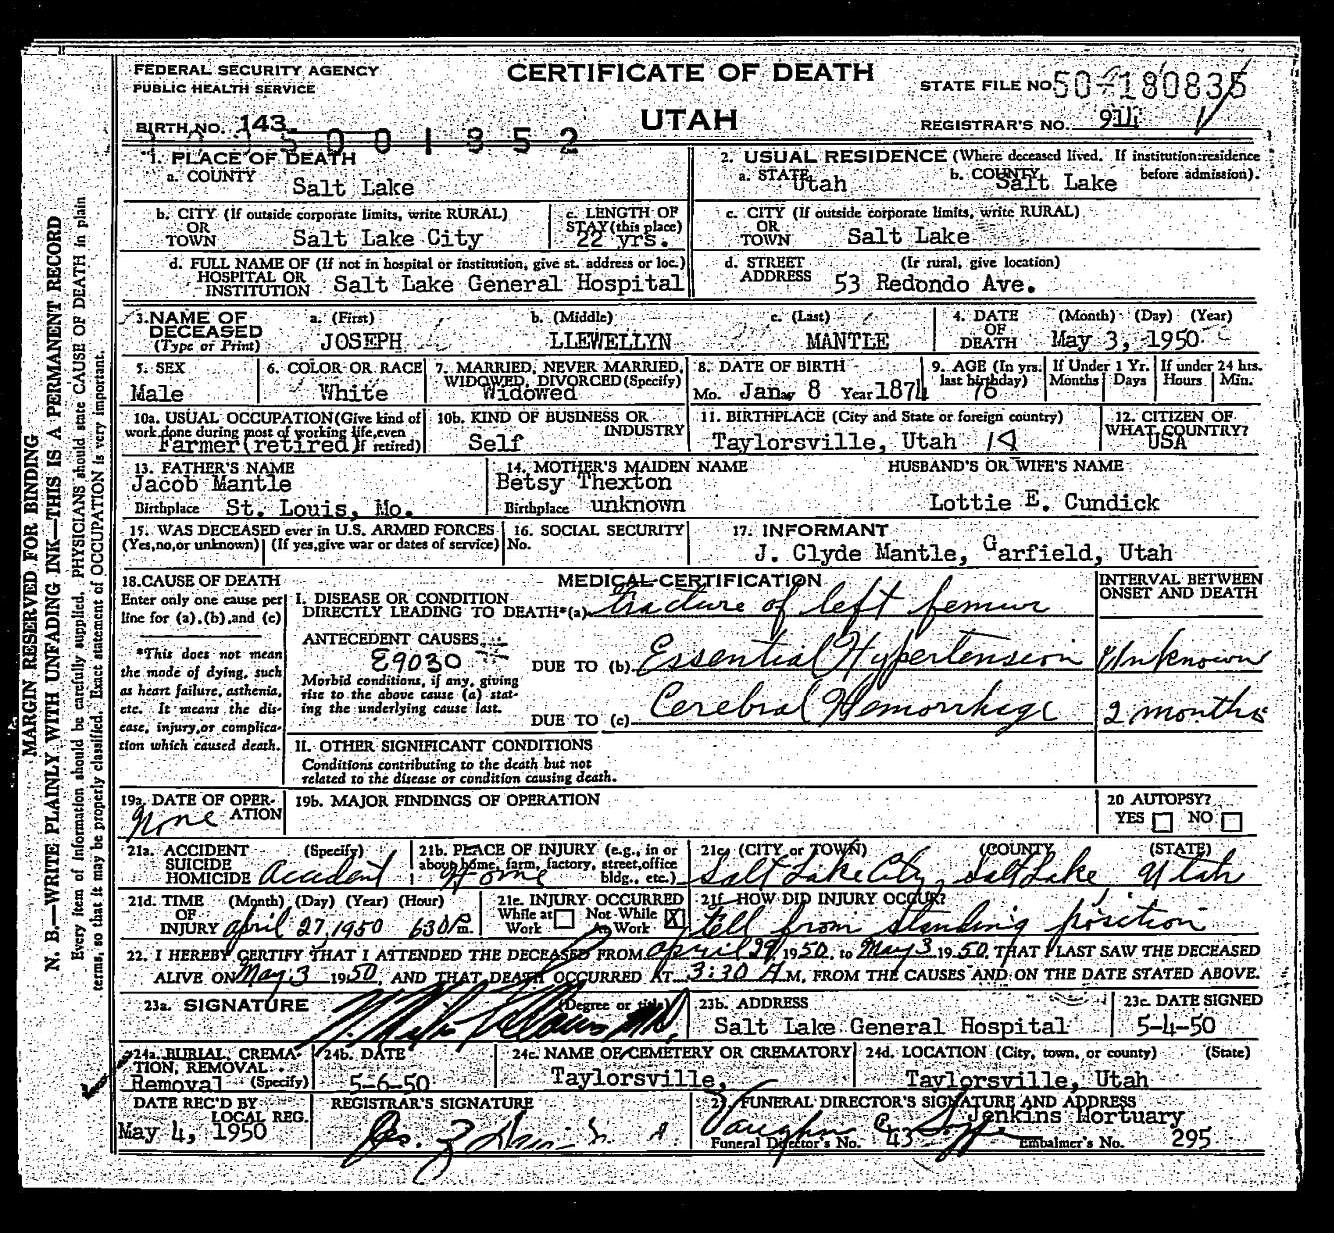 FEDERAL SECURITY AGENCY
PUBLIC HEALTH SERVICE
CERTIFICATE OF DEATH
UTAH
STATE FILE NO. 50-180835
REGISTRAR'S NO. 914
BIRTH NO. 143
5001852
1. PLACE OF DEATH
a. COUNTY Salt Lake
2. USUAL RESIDENCE (Where deceased lived. If institution: residence before admission).
a. STATE Utah b. COUNTY Salt Lake
b. CITY (If outside corporate limits, write RURAL) OR TOWN Salt Lake City
c. LENGTH OF STAY (this place) 22 yrs.
c. CITY (If outside corporate limits, write RURAL) OR TOWN Salt Lake
d. FULL NAME OF (If not in hospital or institution, give st. address or loc.) HOSPITAL OR INSTITUTION Salt Lake General Hospital
d. STREET ADDRESS (If rural, give location) 53 Redondo Ave.
3. NAME OF DECEASED (Type or Print)
a. (First) JOSEPH
b. (Middle) LLEWELLYN
c. (Last) MANTLE
4. DATE OF DEATH (Month) (Day) (Year) May 3, 1950
5. SEX Male
6. COLOR OR RACE White
7. MARRIED, NEVER MARRIED, WIDOWED, DIVORCED (Specify) Widowed
8. DATE OF BIRTH Mo. Jan. Day 8 Year 1874
9. AGE (In yrs. last birthday) 76
If Under 1 Yr. Months Days
If under 24 hrs. Hours Min.
10a. USUAL OCCUPATION (Give kind of work done during most of working life, even if retired) Farmer (retired)
10b. KIND OF BUSINESS OR INDUSTRY Self
11. BIRTHPLACE (City and State or foreign country) Taylorsville, Utah
12. CITIZEN OF WHAT COUNTRY? USA
13. FATHER'S NAME Jacob Mantle
Birthplace St. Louis, Mo.
14. MOTHER'S MAIDEN NAME Betsy Thexton
Birthplace unknown
HUSBAND'S OR WIFE'S NAME
Lottie E. Cundick
15. WAS DECEASED ever in U.S. ARMED FORCES (Yes, no, or unknown) (If yes, give war or dates of service)
16. SOCIAL SECURITY No.
17. INFORMANT
J. Clyde Mantle, Garfield, Utah
18. CAUSE OF DEATH
Enter only one cause per line for (a), (b), and (c)
*This does not mean the mode of dying, such as heart failure, asthenia, etc. It means the disease, injury, or complication which caused death.
MEDICAL CERTIFICATION
INTERVAL BETWEEN ONSET AND DEATH
I. DISEASE OR CONDITION DIRECTLY LEADING TO DEATH* (a) fracture of left femur
ANTECEDENT CAUSES
E9030
Morbid conditions, if any, giving rise to the above cause (a) stating the underlying cause last.
DUE TO (b) Essential Hypertension Unknown
DUE TO (c) Cerebral Hemorrhage 2 months
II. OTHER SIGNIFICANT CONDITIONS
Conditions contributing to the death but not related to the disease or condition causing death.
19a. DATE OF OPERATION None
19b. MAJOR FINDINGS OF OPERATION
20 AUTOPSY?
YES NO
21a. ACCIDENT SUICIDE HOMICIDE (Specify) Accident
21b. PLACE OF INJURY (e.g., in or about home, farm, factory, street, office bldg., etc.) Home
21c. (CITY or TOWN) (COUNTY) (STATE) Salt Lake City, Salt Lake, Utah
21d. TIME OF INJURY (Month) (Day) (Year) (Hour) April 27, 1950 630 P m.
21e. INJURY OCCURRED While at Work Not While At Work X
21f. HOW DID INJURY OCCUR? fell from standing position
22. I HEREBY CERTIFY THAT I ATTENDED THE DECEASED FROM April 29 1950, to May 3 1950, THAT I LAST SAW THE DECEASED
ALIVE ON May 3 1950, AND THAT DEATH OCCURRED AT 3:30 A M. FROM THE CAUSES AND ON THE DATE STATED ABOVE.
23a. SIGNATURE (Degree or title) MD.
23b. ADDRESS
Salt Lake General Hospital
23c. DATE SIGNED
5-4-50
24a. BURIAL, CREMATION, REMOVAL (Specify) Removal
24b. DATE
5-6-50
24c. NAME OF CEMETERY OR CREMATORY
Taylorsville,
24d. LOCATION (City, town, or county) (State)
Taylorsville, Utah
DATE REC'D BY LOCAL REG.
May 4, 1950
REGISTRAR'S SIGNATURE
25. FUNERAL DIRECTOR'S SIGNATURE AND ADDRESS
Jenkins Mortuary
Vaughn
Funeral Director's No. 43 Embalmer's No. 295
MARGIN RESERVED FOR BINDING
N. B.—WRITE PLAINLY WITH UNFADING INK—THIS IS A PERMANENT RECORD
Every item of information should be carefully supplied. PHYSICIANS should state CAUSE OF DEATH in plain
terms, so that it may be properly classified. Exact statement of OCCUPATION is very important.